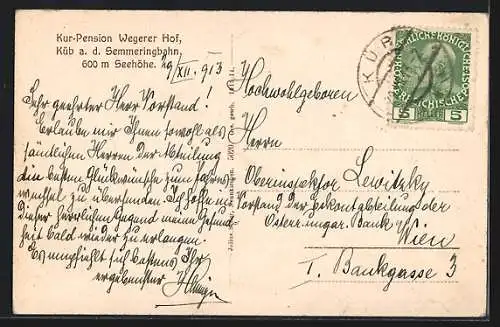 Kur-Pension Wegerer Hof,
Küb a. d. Semmeringbahn,
600 m Seehöhe.
29/XII. 913
Sehr geehrter Herr Vorstand!
Erlaube mir Ihnen sowohl als
sämtlichen Herren der Abteilung
die besten Glückwünsche zum Jahres
wechsel zu übersenden. Ich hoffe in
dieser herrlichen Gegend meine Gesund
heit bald wieder zu erlangen.
Es empfiehlt sich bestens Ihr
ergebenster
Hochwohlgeboren
Herrn
Oberinspektor Lewitzky
Vorstand der Eskontabteilung der
Österr. ungar. Bank
Wien
I. Bankgasse 3
KÜB
5 HELLER 5